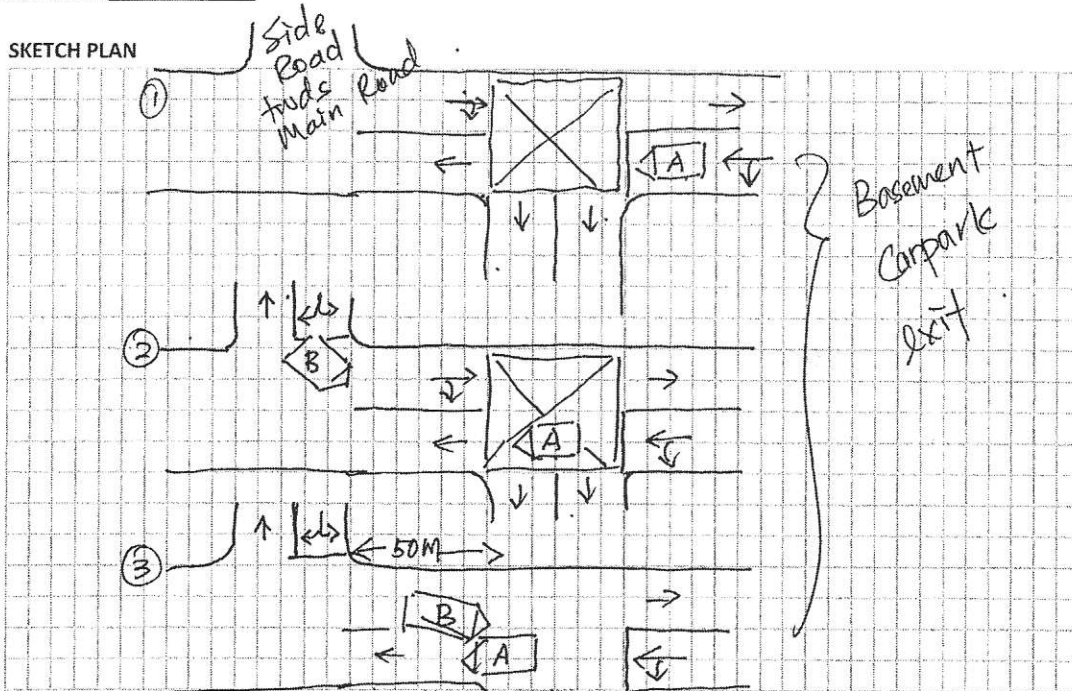 SKETCH PLAN
Side
Road
twds
Main Road
1
A
Basement
Carpark
exit
2
B
A
3
50M
B
A